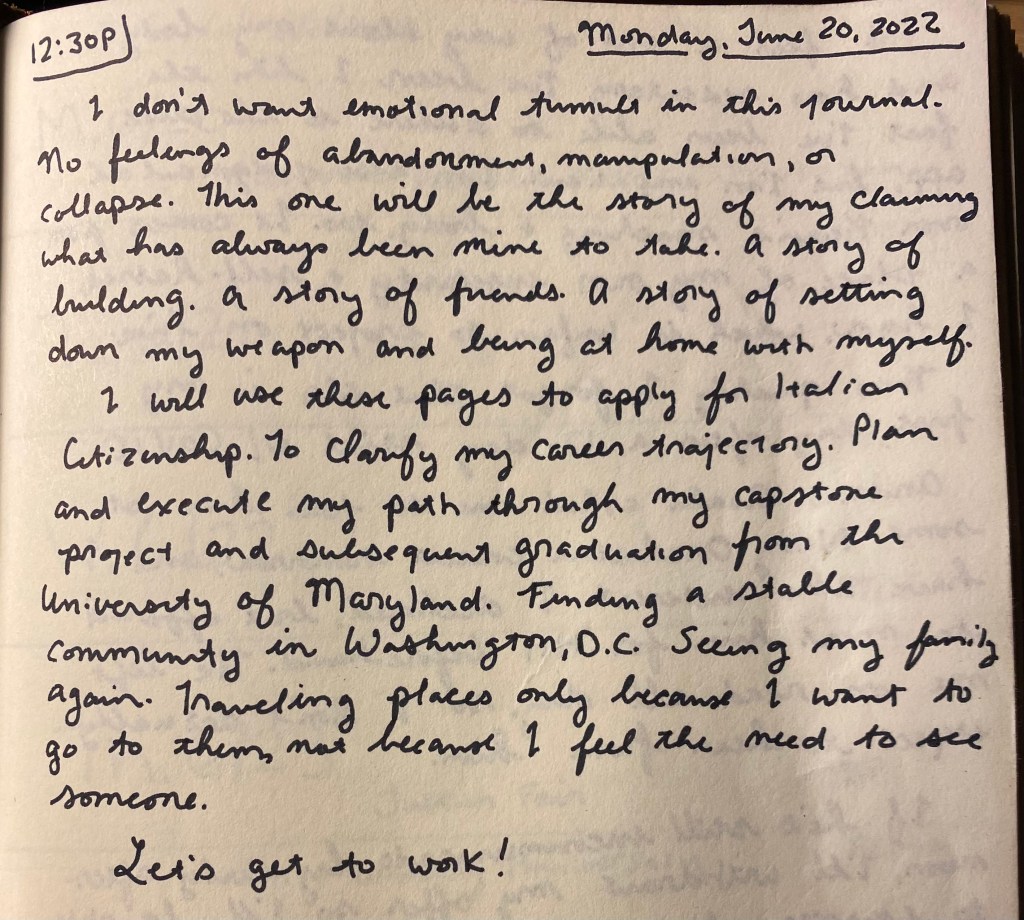 12:30P
Monday, June 20, 2022
I don't want emotional tumult in this journal.
No feelings of abandonment, manipulation, or
collapse. This one will be the story of my claiming
what has always been mine to take. A story of
building. A story of friends. A story of setting
down my weapon and being at home with myself.
I will use these pages to apply for Italian
Citizenship. To Clarify my career trajectory. Plan
and execute my path through my capstone
project and subsequent graduation from the
University of Maryland. Finding a stable
community in Washington, D.C. Seeing my family
again. Traveling places only because I want to
go to them, not because I feel the need to see
someone.
Let's get to work!